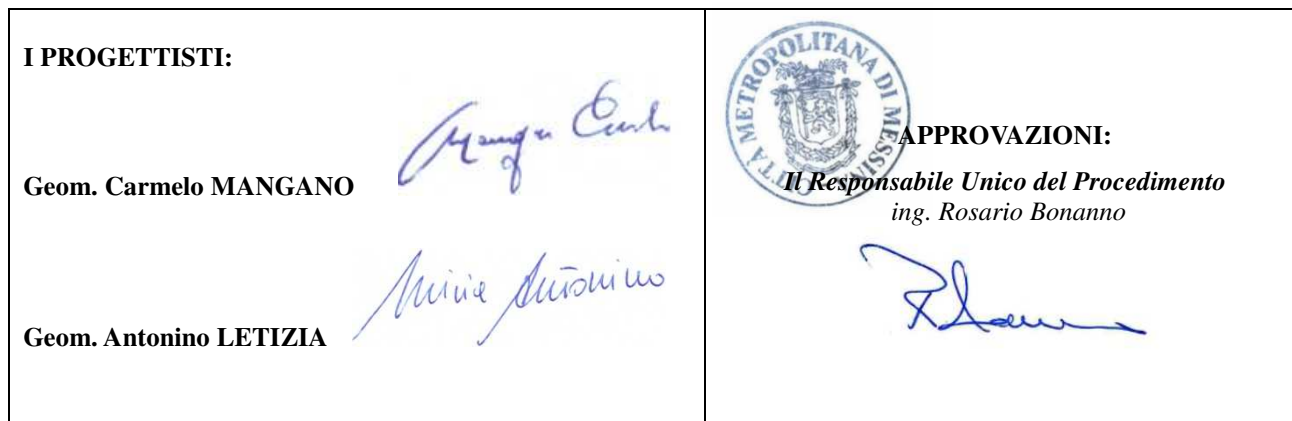 I PROGETTISTI:
Geom. Carmelo MANGANO
Antonino
Geom. Antonino LETIZIA
CITTÀ METROPOLITANA DI MESSINA
APPROVAZIONI:
Il Responsabile Unico del Procedimento
ing. Rosario Bonanno